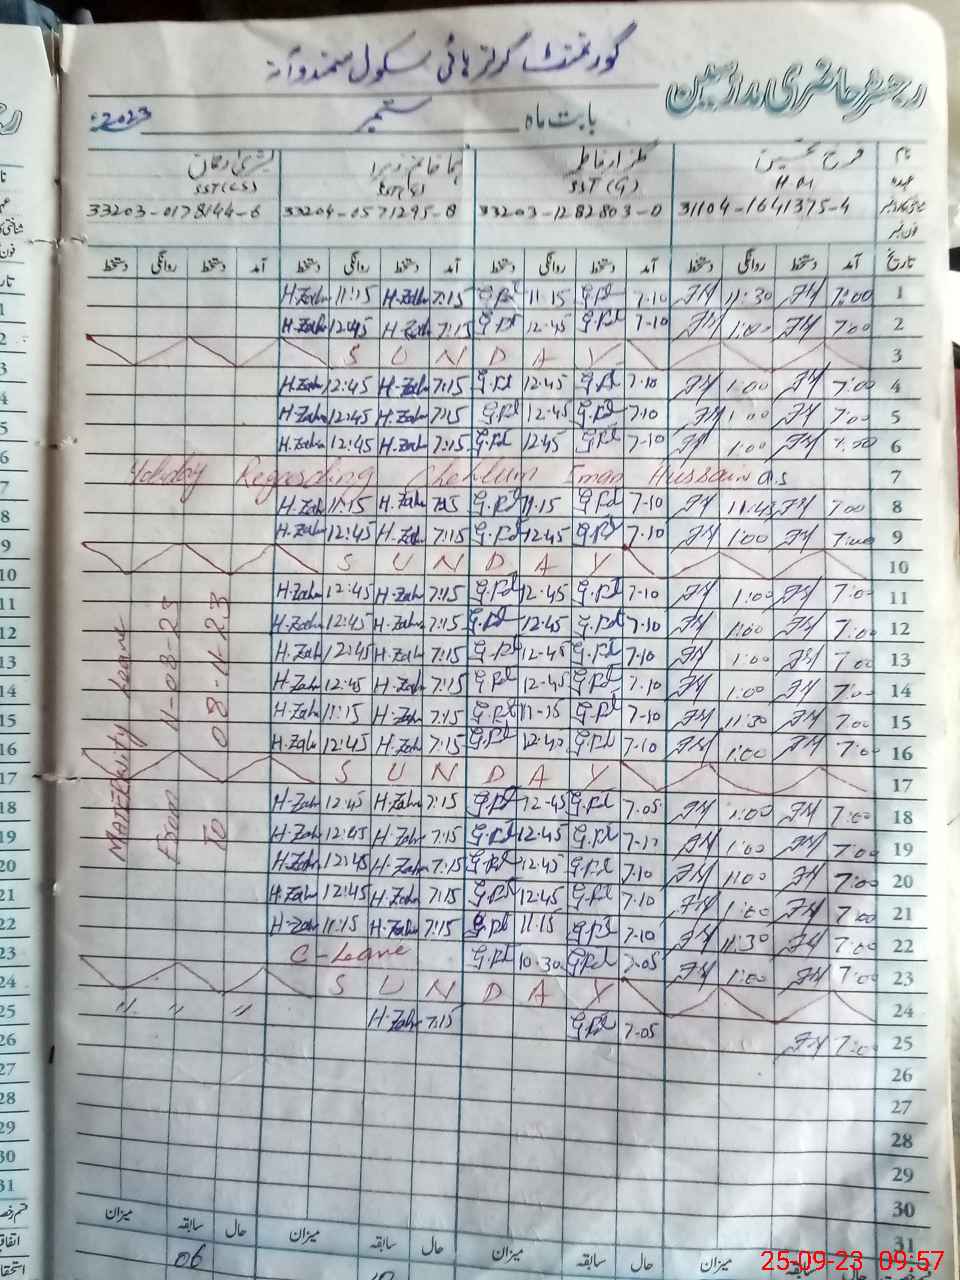 گورنمنٹ گرلز ہائی سکول سمندوآنہ
رجسٹر حاضری مدرسین
بابت ماہ ستمبر 2023ء
نام فرح تحسین گلزار فاطمہ ہما خانم زہرا بشریٰ
عہدہ H.M SST(G) SST(G) SST(CS)
31104-1641375-4 33203-1282803-0 33204-0571295-8 33203-0178144-6
فون نمبر
تاریخ آمد دستخط روانگی دستخط آمد دستخط روانگی دستخط آمد دستخط روانگی دستخط آمد دستخط روانگی دستخط
H.Zahr 11:15 H.Zahr 7:15 G.Fd 11-15 G.Fd 7-10 FH 11:30 FH 7:00 1
H.Zahr 12:45 H.Zahr 7:15 G.Fd 12-45 G.Fd 7-10 FH 1:00 FH 7:00 2
SUNDAY 3
H.Zahr 12:45 H.Zahr 7:15 G.Fd 12-45 G.Fd 7-10 FH 1:00 FH 7:00 4
H.Zahr 12:45 H.Zahr 7:15 G.Fd 12-45 G.Fd 7-10 FH 1:00 FH 7:00 5
H.Zahr 12:45 H.Zahr 7:15 G.Fd 12-45 G.Fd 7-10 FH 1:00 FH 7:00 6
Holyday Regarding Chehlum Imam Hussain a.s 7
H.Zahr 11:15 H.Zahr 7:15 G.Fd 11-15 G.Fd 7-10 FH 11:45 FH 7:00 8
H.Zahr 12:45 H.Zahr 7:15 G.Fd 12-45 G.Fd 7-10 FH 1:00 FH 7:00 9
SUNDAY 10
H.Zahr 12:45 H.Zahr 7:15 G.Fd 12-45 G.Fd 7-10 FH 1:00 FH 7:00 11
H.Zahr 12:45 H.Zahr 7:15 G.Fd 12-45 G.Fd 7-10 FH 1:00 FH 7:00 12
H.Zahr 12:45 H.Zahr 7:15 G.Fd 12-45 G.Fd 7-10 FH 1:00 FH 7:00 13
H.Zahr 12:45 H.Zahr 7:15 G.Fd 12-45 G.Fd 7-10 FH 1:00 FH 7:00 14
H.Zahr 11:15 H.Zahr 7:15 G.Fd 11-15 G.Fd 7-10 FH 11:30 FH 7:00 15
H.Zahr 12:45 H.Zahr 7:15 G.Fd 12-40 G.Fd 7-10 FH 1:00 FH 7:00 16
SUNDAY 17
H.Zahr 12:45 H.Zahr 7:15 G.Fd 12-45 G.Fd 7-05 FH 1:00 FH 7:00 18
H.Zahr 12:45 H.Zahr 7:15 G.Fd 12-45 G.Fd 7-10 FH 1:00 FH 7:00 19
H.Zahr 12:45 H.Zahr 7:15 G.Fd 12-45 G.Fd 7-10 FH 1:00 FH 7:00 20
H.Zahr 12:45 H.Zahr 7:15 G.Fd 12-45 G.Fd 7-10 FH 1:00 FH 7:00 21
H.Zahr 11:15 H.Zahr 7:15 G.Fd 11-15 G.Fd 7-10 FH 11:30 FH 7:00 22
C-Leave G.Fd 10-30 G.Fd 7-05 FH 1:00 FH 7:00 23
SUNDAY 24
" " " H.Zahr 7:15 G.Fd 7-05 FH 7:00 25
26
27
28
29
30
31
Maternity Leave
From 11-08-23
To 08-11-23
حال سابقہ میزان حال سابقہ میزان حال سابقہ میزان حال سابقہ میزان
06
25-09-23 09:57